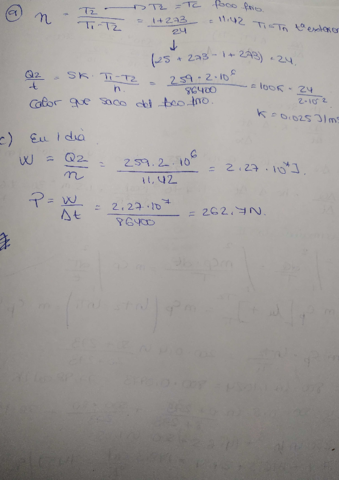 a) n = T2 / T1-T2 → T2 = T2 foco frio
= 1+273 / 24 = 11.42 T1=Tn tª
(25 + 273 - 1 + 273) = 24.
Q2/t = SK · T1-T2/n = 259·2·10⁶ / 86400 = 100K · 24 / 2·10⁻²
Calor que saco del foco frio.
K = 0.025 J/m
c) En 1 dia
W = Q2/n = 259.2·10⁶ / 11.42 = 2.27·10⁷ J.
P = W/Δt = 2.27·10⁷ / 86400 = 262.7N.